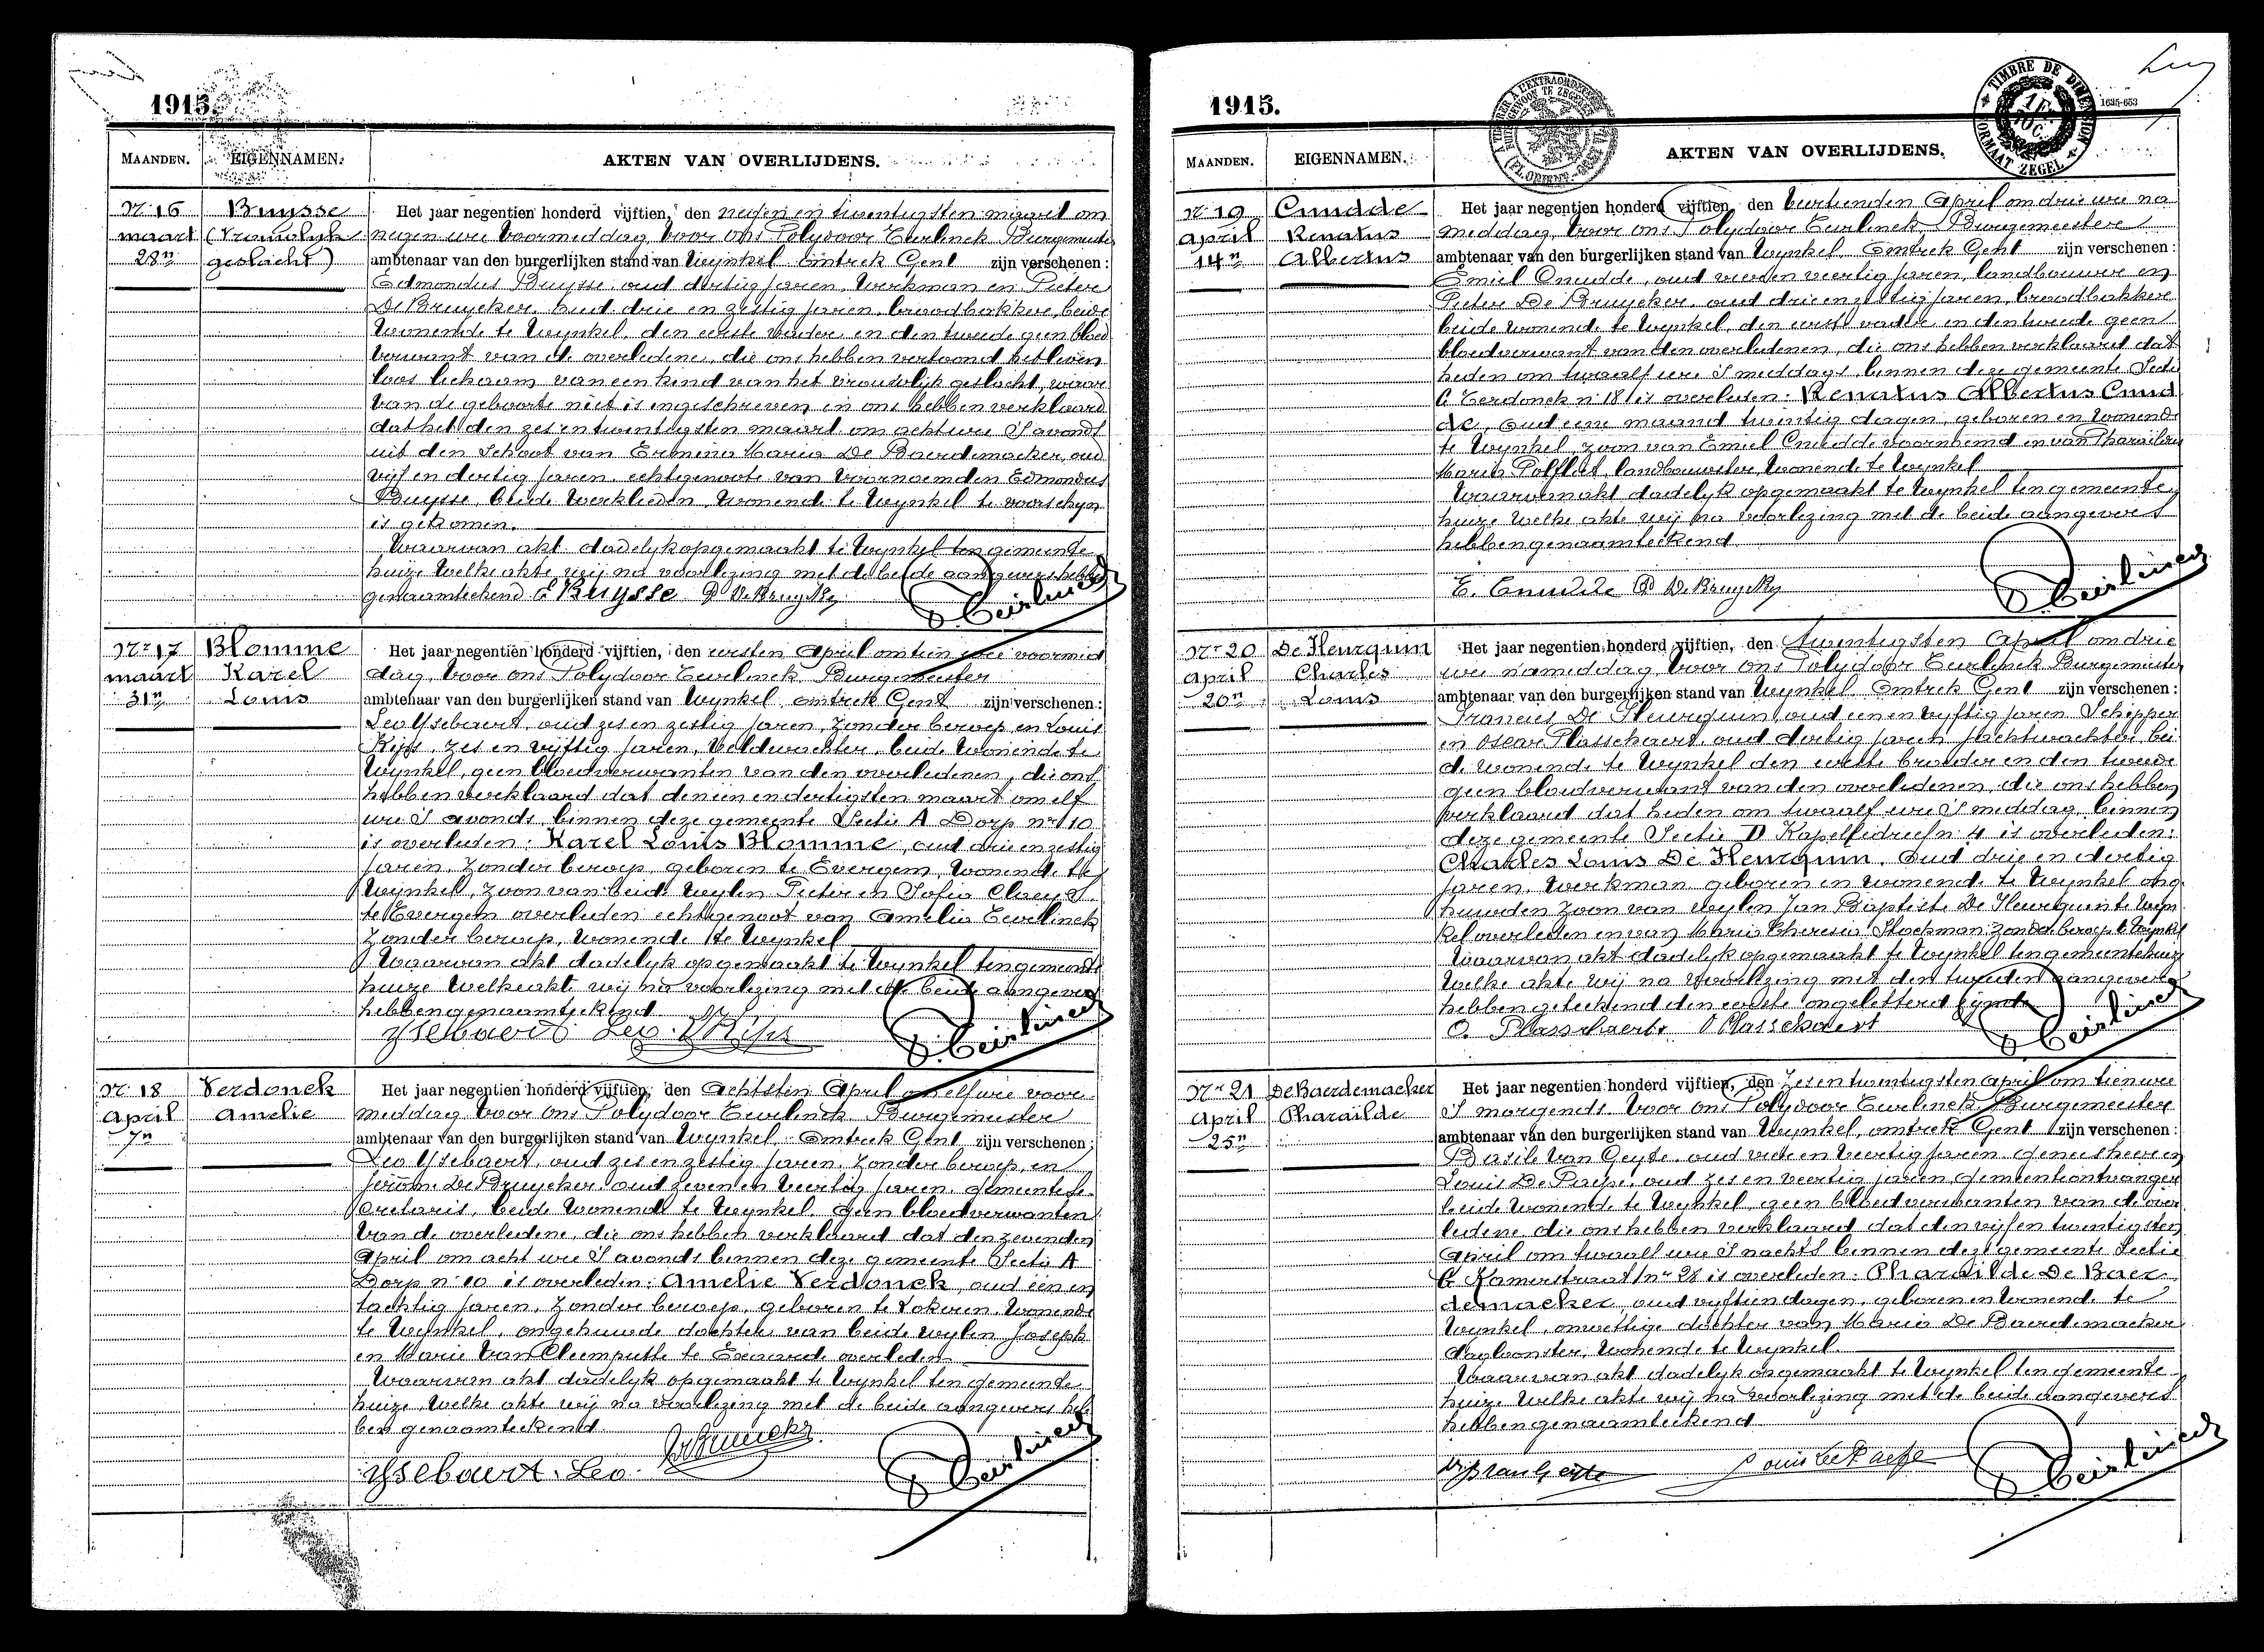 1915.
MAANDEN.
EIGENNAMEN.
AKTEN VAN OVERLIJDENS.
Nr 16
maart
28n
Buysse
(Vrouwlijk
geslacht)
Het jaar negentien honderd vijftien, den negen en twintigsten maart om
negen ure voormiddag, voor ons Polydoor Eeirlinck Burgemeester
ambtenaar van den burgerlijken stand van Wynkel Omtrek Gent zijn verschenen:
Edmondus Buysse oud dertig jaren, Werkman en Pieter
De Bruycker, oud drie en zestig jaren, broodbakker, beide
wonende te Wynkel, den eerste vader en den tweede geen bloed
verwant van de overledene, die ons hebben vertoond het leven
loos lichaam van een kind van het vrouwlijk geslacht, waar
van de geboorte niet is ingeschreven en ons hebben verklaard
dat het den zes en twintigsten maart om acht ure 's avonds
uit den schoot van Ermina Maria De Baerdemacker, oud
vijf en dertig jaren, echtgenoote van voornoemden Edmondus
Buysse, beide werklieden, wonende te Wynkel te voorschyn
is gekomen.
Waarvan akt dadelyk opgemaakt te Wynkel ten gemeente
huize welke akte wij na voorlezing met de beide aangevers hebben
genaamteekend E Buysse P De Bruycker
Nr 17
maart
31n
Blomme
Karel
Louis
Het jaar negentien honderd vijftien, den eersten April om tien ure voormid
dag, voor ons Polydoor Eeirlinck Burgemeester
ambtenaar van den burgerlijken stand van Wynkel omtrek Gent zijn verschenen:
Leo Ysebaert, oud zes en zestig jaren, zonder beroep en Louis
Kips, zes en vijftig jaren, veldwachter, beide wonende te
Wynkel, geen bloedverwanten van den overledenen, die ons
hebben verklaard dat den een en dertigsten maart om elf
ure 's avonds binnen deze gemeente Sectie A Dorp nr 10
is overleden: Karel Louis Blomme, oud drie en zestig
jaren, zonder beroep, geboren te Evergem, wonende te
Wynkel, zoon van beide wylen Pieter en Sofia Claeys
te Evergem overleden echtgenoot van Amelia Eeirlinck
zonder beroep, wonende te Wynkel
Waarvan akt dadelyk opgemaakt te Wynkel ten gemeente
huize welke akte wij na voorlezing met de beide aangevers
hebben genaamteekend
Ysebaert Leo. L Kips
Nr 18
April
7n
Verdonck
Amelie
Het jaar negentien honderd vijftien, den achtsten April om elf ure voor
middag voor ons Polydoor Eeirlinck Burgemeester
ambtenaar van den burgerlijken stand van Wynkel Omtrek Gent zijn verschenen:
Leo Ysebaert, oud zes en zestig jaren, zonder beroep, en
Jerôme De Bruycker oud zeven en veertig jaren, gemeentese
cretaris, beide wonende te Wynkel, geen bloedverwanten
van de overledene, die ons hebben verklaard dat den zevenden
April om acht ure 's avonds binnen deze gemeente Sectie A
Dorp nr 10 is overleden: Amelie Verdonck, oud een en
tachtig jaren, zonder beroep, geboren te Lokeren, wonende
te Wynkel, ongehuwde dochter van beide wylen Joseph
en Marie Van Cleemputte te overleden
Waarvan akt dadelyk opgemaakt te Wynkel ten gemeente
huize, welke akte wij na voorlezing met de beide aangevers heb
ben genaamteekend
Ysebaert. Leo.
1915.
1635-653
TIMBRE DE DIMENSION
FORMAAT ZEGEL
MAANDEN.
EIGENNAMEN.
AKTEN VAN OVERLIJDENS.
Nr 19
April
14n
Cnudde
Renatus
Albertus
Het jaar negentien honderd vijftien, den veertienden April om drie ure na
middag, voor ons Polydoor Eeirlinck Burgemeester
ambtenaar van den burgerlijken stand van Wynkel, Omtrek Gent zijn verschenen:
Emiel Cnudde, oud vier en veertig jaren, landbouwer en
Pieter De Bruycker, oud drie en zestig jaren, broodbakker
beide wonende te Wynkel, den eerste vader, en den tweede geen
bloedverwant van den overledenen, die ons hebben verklaard dat
heden om twaalf ure 's middags, binnen deze gemeente Sectie
C Eerdonck nr 18 is overleden: Renatus Albertus Cnud
de, oud eene maand twintig dagen, geboren en wonende
te Wynkel, zoon van Emiel Cnudde voornoemd en van Pharaïlde
Maria Polfliet, landbouwster, wonende te Wynkel
Waarvan akt dadelyk opgemaakt te Wynkel ten gemeente
huize welke akte wij na voorlezing met de beide aangevers
hebben genaamteekend
E. Cnudde P De Bruycker
Nr 20
April
20n
De Fleurquin
Charles
Louis
Het jaar negentien honderd vijftien, den twintigsten April om drie
ure namiddag voor ons Polydoor Eeirlinck Burgemeester
ambtenaar van den burgerlijken stand van Wynkel Omtrek Gent zijn verschenen:
Francies De Fleurquin, oud een en vyftig jaren Schipper
en Oscar Plasschaert, oud dertig jaren, nachtwachter, bei
de wonende te Wynkel den eerste broeder en den tweede
geen bloedverwant van den overledenen, die ons hebben
verklaard dat heden om twaalf ure 's middag, binnen
deze gemeente Sectie D Kapelledries nr 4 is overleden:
Charles Louis De Fleurquin, oud drie en dertig
jaren, werkman geboren en wonende te Wynkel ong
huwden zoon van wylen Jan Baptiste De Fleurquin te Wyn
kel overleden en van Maria Theresia Stockman zonder beroep te Wynkel
Waarvan akt dadelyk opgemaakt te Wynkel ten gemeentehuize
welke akte wij na voorlezing met den tweeden aangever
hebben geteekend den eerste ongeletterd zijnde
O. Plasschaert. O Plasschaert
Nr 21
April
25n
De Baerdemacker
Pharaïlde
Het jaar negentien honderd vijftien, den zes en twintigsten April om tien ure
's morgends voor ons Polydoor Eeirlinck Burgemeester
ambtenaar van den burgerlijken stand van Wynkel, omtrek Gent zijn verschenen:
Basile Van Geyte, oud vier en veertig jaren geneesheer en
Louis De Paepe, oud zes en veertig jaren, gemeenteontvanger
beide wonende te Wynkel, geen bloedverwanten van de over
ledene die ons hebben verklaard dat den vijf en twintigsten
April om twaalf ure 's nachts binnen deze gemeente Sectie
C Kamerstraat nr 28 is overleden: Pharaïlde De Baer
demacker, oud vyftien dagen, geboren en wonende te
Wynkel, onwettige dochter van Maria De Baerdemacker
dagloonster, wonende te Wynkel
Waarvan akt dadelyk opgemaakt te Wynkel ten gemeente
huize welke akte wij na voorlezing met de beide aangevers
hebben genaamteekend
Louis De Paepe